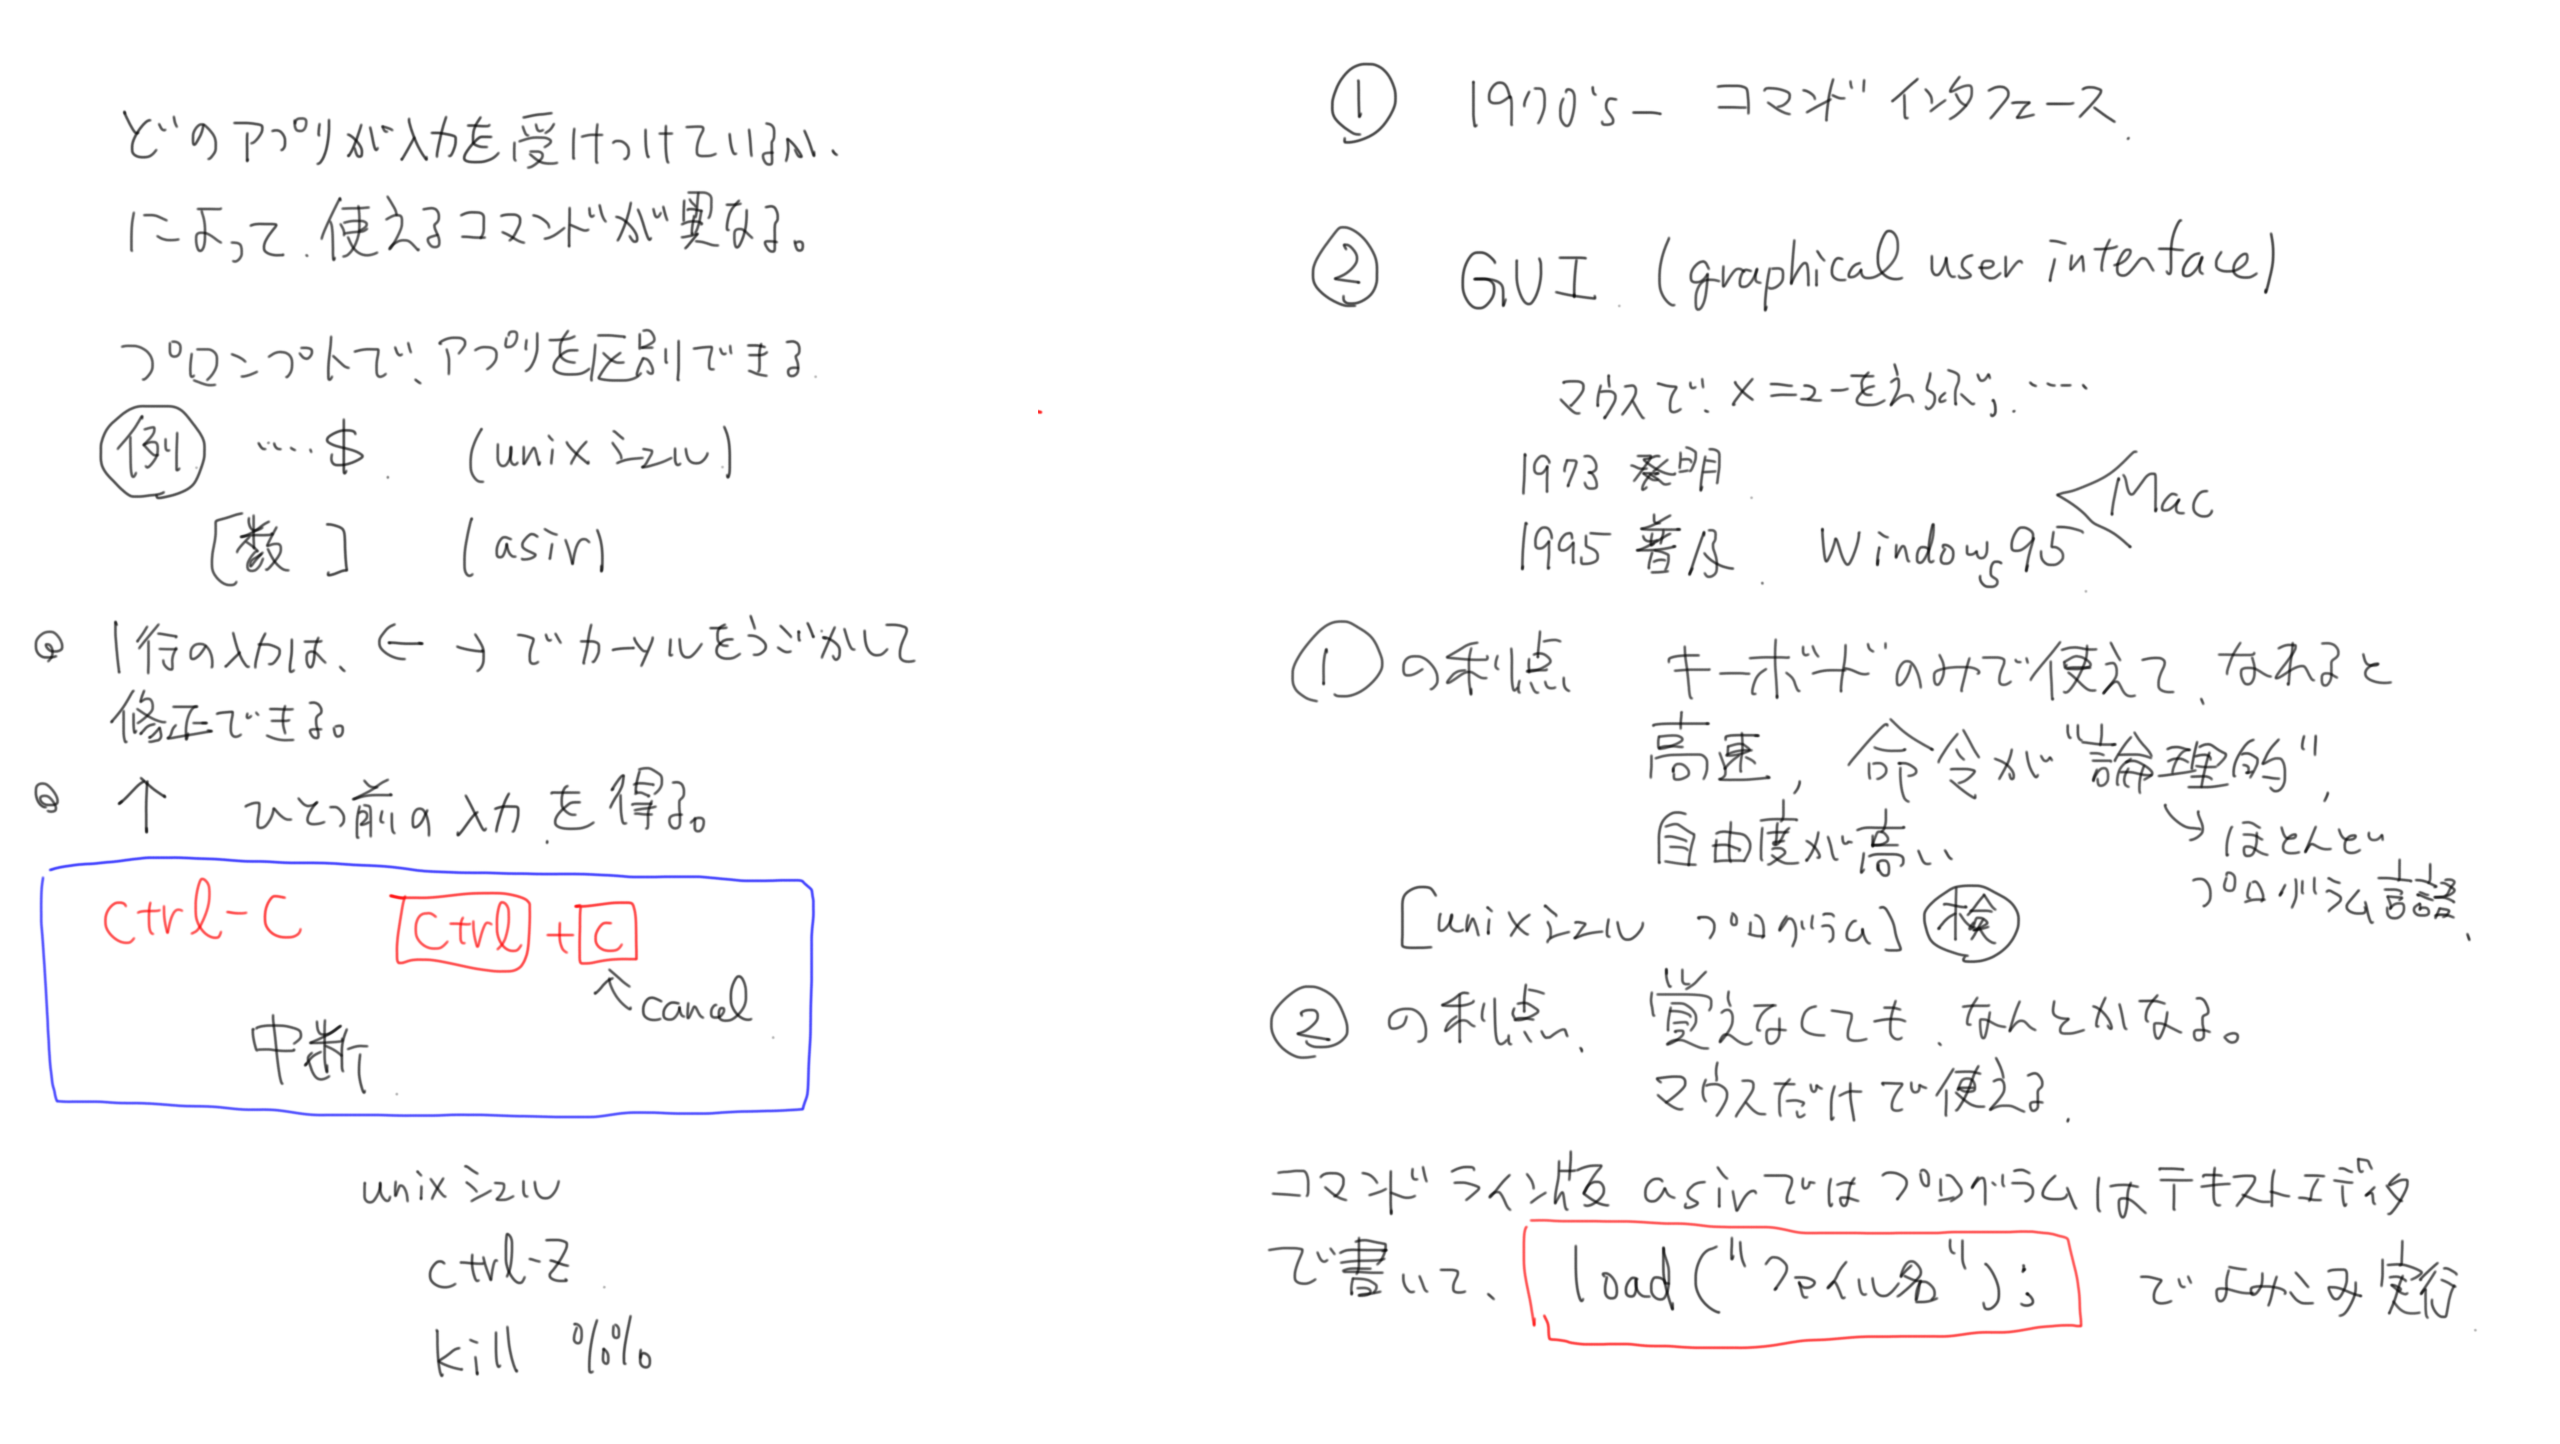 どのアプリが入力を受けつけているか、
によって、使えるコマンドが異なる。
プロンプトで、アプリを区別できる.
例 ....$ (unixシェル)
[数] (asir)
1行の入力は、← → でカーソルをうごかして
修正できる。
↑ ひとつ前の入力を得る。
ctrl-c ctrl + c
cancel
中断
unixシェル
ctrl-z
kill %%
① 1970's- コマンドインタフェース.
② GUI (graphical user interface)
マウスで、メニューをえらぶ, ....
1973 発明
1995 普及 Windows95 < Mac
①の利点 キーボードのみで使えて、なれると
高速, 命令が"論理的",
自由度が高い
→ ほとんど
プログラム言語.
[unixシェル プログラム] 検
②の利点、覚えなくても、なんとかなる。
マウスだけで使える.
コマンドライン版 asirではプログラムはテキストエディタ
で書いて、load("ファイル名"); でよみこみ実行